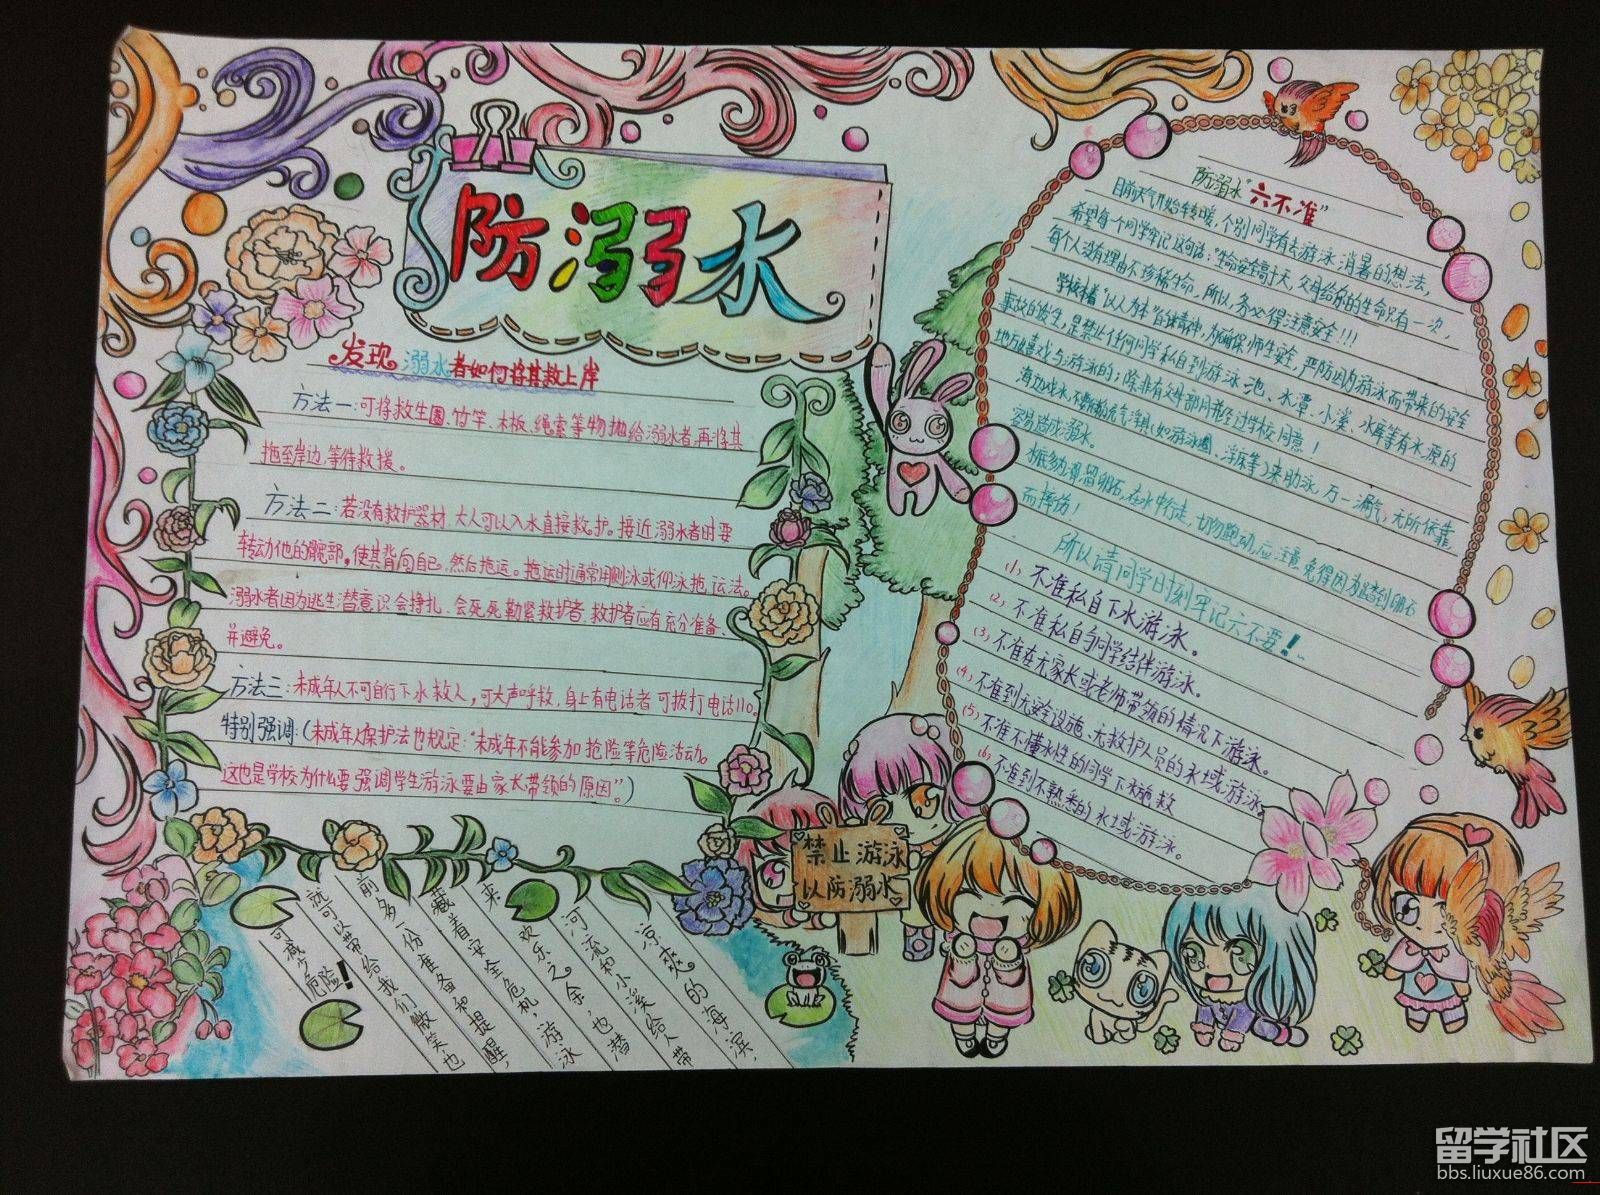 防溺水
发现溺水者如何将其救上岸
方法一:可将救生圈、竹竿、木板、绳索等物抛给溺水者,再将其
拖至岸边,等待救援。
方法二:若没有救护器材,大人可以入水直接救护。接近溺水者时要
转动他的髋部,使其背向自己,然后拖运。拖运时通常用侧泳或仰泳拖运法。
溺水者因为逃生潜意识会挣扎,会死死勒紧救护者,救护者应有充分准备、
并避免。
方法三:未成年人不可自行下水救人,可大声呼救,身上有电话者可拔打电话110。
特别强调:(未成年人保护法也规定:“未成年不能参加抢险等危险活动。
这也是学校为什么要强调学生游泳要由家长带领的原因”。)
凉爽的海滨,
河流和小溪给人带
来欢乐之余,也潜
藏着安全危机,游泳
前多一份准备和提醒,
就可以带给我们微笑,也
可减少危险!
禁止游泳
以防溺水
防溺水“六不准”
目前天气开始转暖,个别同学有去游泳消暑的想法,
希望每个同学牢记这句话:“生命安全高于天,父母给我的生命只有一次,
每个人没有理由不珍稀生命,所以,务必得注意安全!!!
学校本着“以人为本”的精神,为确保师生安全,严防因为游泳而带来的安全
事故的发生,是禁止任何同学私自到游泳池、水潭、小溪、水库等有水源的
地方嬉戏与游泳的;除非有父母部同并经过学校同意!
海边戏水,不要依赖充气浮具(如游泳圈、浮床等)来助泳,万一漏气,无所依靠,
容易造成溺水。
而摔伤!
所以请同学时刻牢记六不要!
(1) 不准私自下水游泳。
(2) 不准私自与同学结伴游泳。
(3) 不准在无家长或老师带领的情况下游泳。
(4) 不准到无安全设施、无救护人员的水域游泳。
(5) 不准不懂水性的同学下水施救
(6) 不准到不熟悉的水域游泳。
留学社区
bbs.liuxue86.com